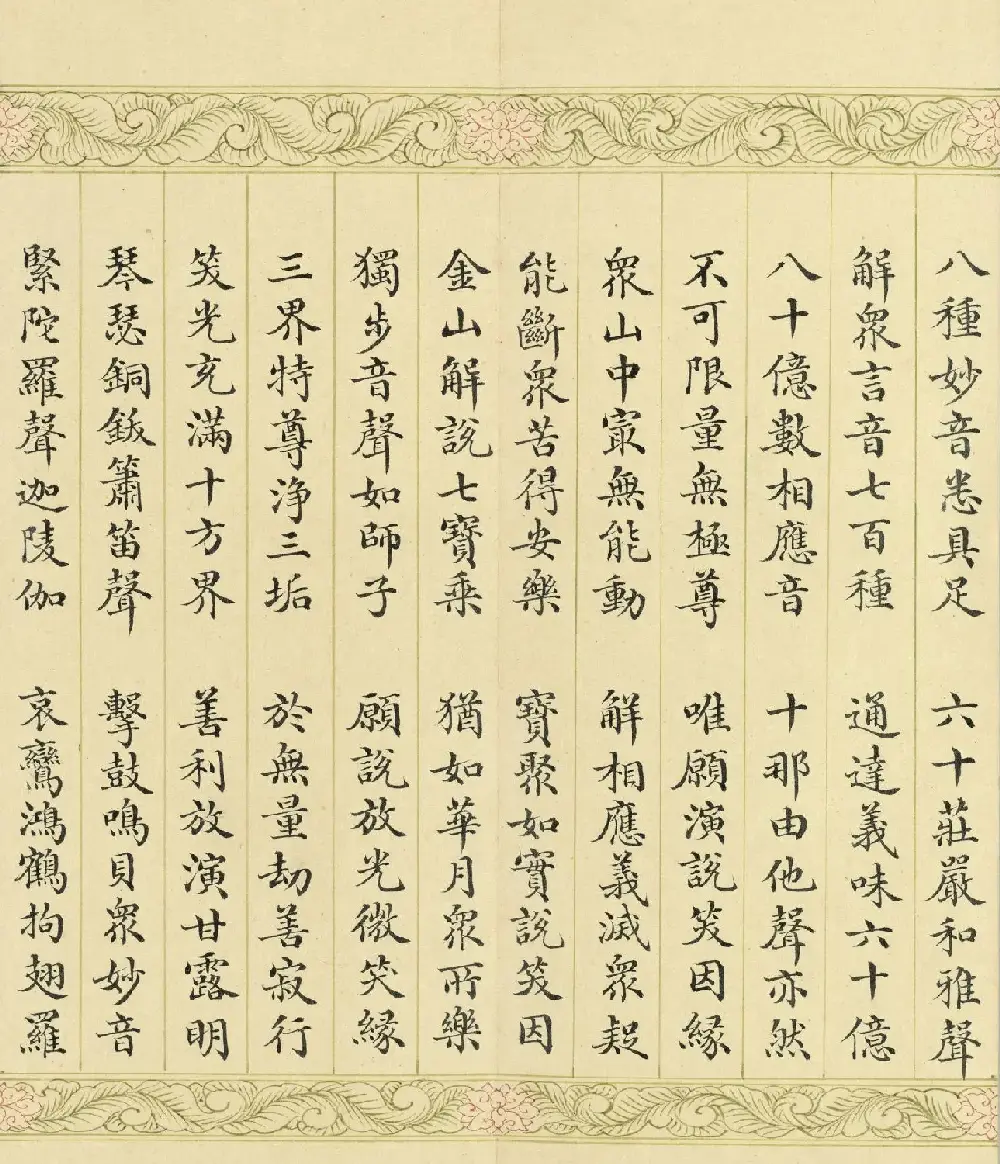 八種妙音悉具足　六十莊嚴和雅聲
解眾言音七百種　通達義味六十億
八十億數相應音　十那由他聲亦然
不可限量無極尊　唯願演說笑因緣
眾山中冣無能動　解相應義滅眾疑
能斷眾苦得安樂　寶聚如實說笑因
金山解說七寶乘　猶如華月眾所樂
獨步音聲如師子　願說放光微笑緣
三界特尊淨三垢　於無量劫善寂行
笑光充滿十方界　善利放演甘露明
琴瑟銅鈸簫笛聲　擊鼓鳴貝眾妙音
緊陀羅聲迦陵伽　哀鸞鴻鶴拘翅羅